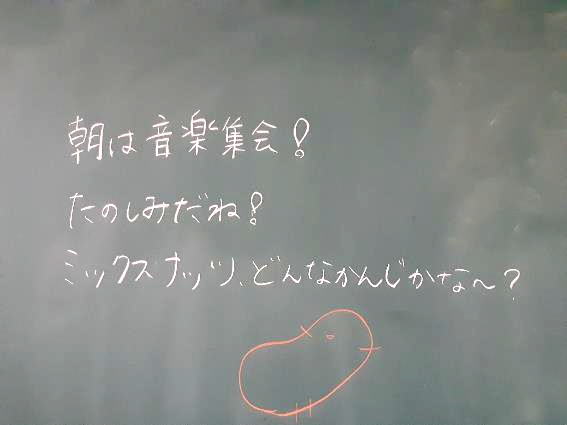 朝は音楽集会!
たのしみだね!
ミックスナッツ、どんなかんじかな~?